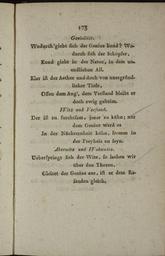 173
Genialität.
Wodurch giebt sich der Genius kund? Wo-
durch sich der Schöpfer
Kund giebt in der Natur, in dem un-
endlichen All.
Klar ist der Aether und doch von unergründ-
licher Tiefe,
Offen dem Aug', dem Verstand bleibt er
doch ewig geheim.
Witz und Verstand.
Der ist zu furchtsam, jener zu kühn; nur
dem Genius ward es
In der Nüchternheit kühn, fromm in
der Freyheit zu seyn.
Aberwitz und Wahnwitz.
Ueberspringt sich der Witz, so lachen wir
über den Thoren,
Gleitet der Genius aus, ist er dem Ra-
senden gleich.